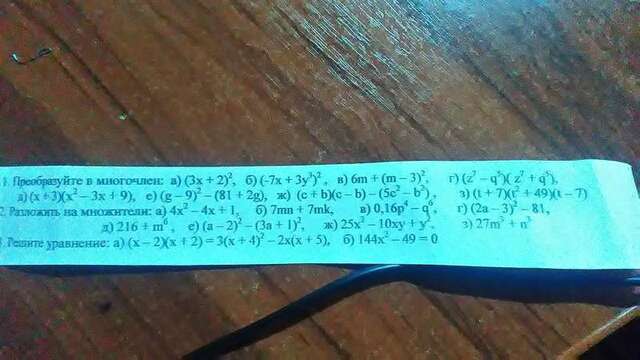 1. Преобразуйте в многочлен: а) (3x + 2)², б) (-7x + 3y³)², в) 6m + (m – 3)², г) (z⁷ – q⁵)( z⁷ + q⁵),
д) (x + 3)(x² – 3x + 9), е) (g – 9)² – (81 + 2g), ж) (c + b)(c – b) – (5c² – b²) , з) (t + 7)(t² + 49)(t – 7)
2. Разложить на множители: а) 4x² – 4x + 1, б) 7mn + 7mk, в) 0,16p⁴ – q⁶, г) (2a – 3)² – 81,
д) 216 + m⁶ , е) (a – 2)² – (3a + 1)², ж) 25x² – 10xy + y², з) 27m³ + n³
3. Решите уравнение: а) (x – 2)(x + 2) = 3(x + 4)² – 2x(x + 5), б) 144x² – 49 = 0